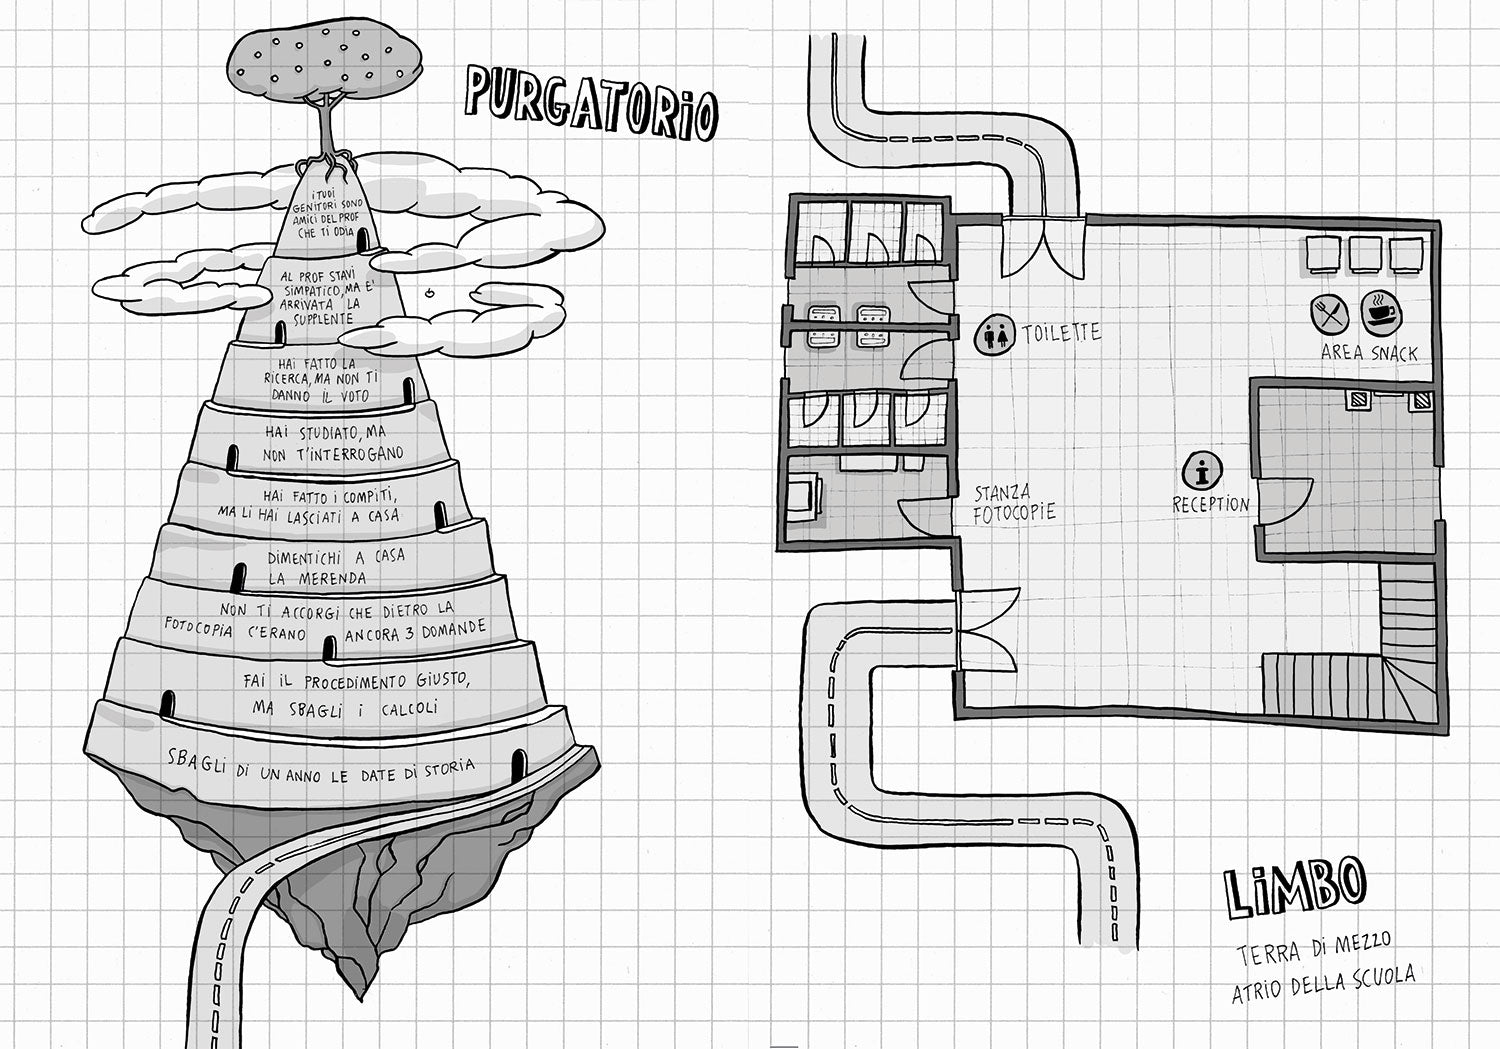 PURGATORIO
I TUOI
GENITORI SONO
AMICI DEL PROF
CHE TI ODIA
AL PROF STAVI
SIMPATICO, MA E'
ARRIVATA LA
SUPPLENTE
HAI FATTO LA
RICERCA, MA NON TI
DANNO IL VOTO
HAI STUDIATO, MA
NON T'INTERROGANO
HAI FATTO I COMPITI,
MA LI HAI LASCIATI A CASA
DIMENTICHI A CASA
LA MERENDA
NON TI ACCORGI CHE DIETRO LA
FOTOCOPIA C'ERANO ANCORA 3 DOMANDE
FAI IL PROCEDIMENTO GIUSTO,
MA SBAGLI I CALCOLI
SBAGLI DI UN ANNO LE DATE DI STORIA
TOILETTE
AREA SNACK
STANZA
FOTOCOPIE
i
RECEPTION
LIMBO
TERRA DI MEZZO
ATRIO DELLA SCUOLA